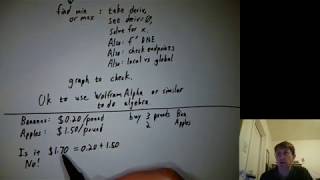 find min : take deriv,
or max set deriv=0,
solve for x.
Also: f' DNE
Also: check endpoints
Also: local vs global
graph to check.
Ok to use Wolfram Alpha or similar
to do algebra.
Bananas: $0.20/pound buy 3 pounds Ban
Apples: $1.50/pound 2 Apples
Is it $1.70 = 0.20 + 1.50
No!